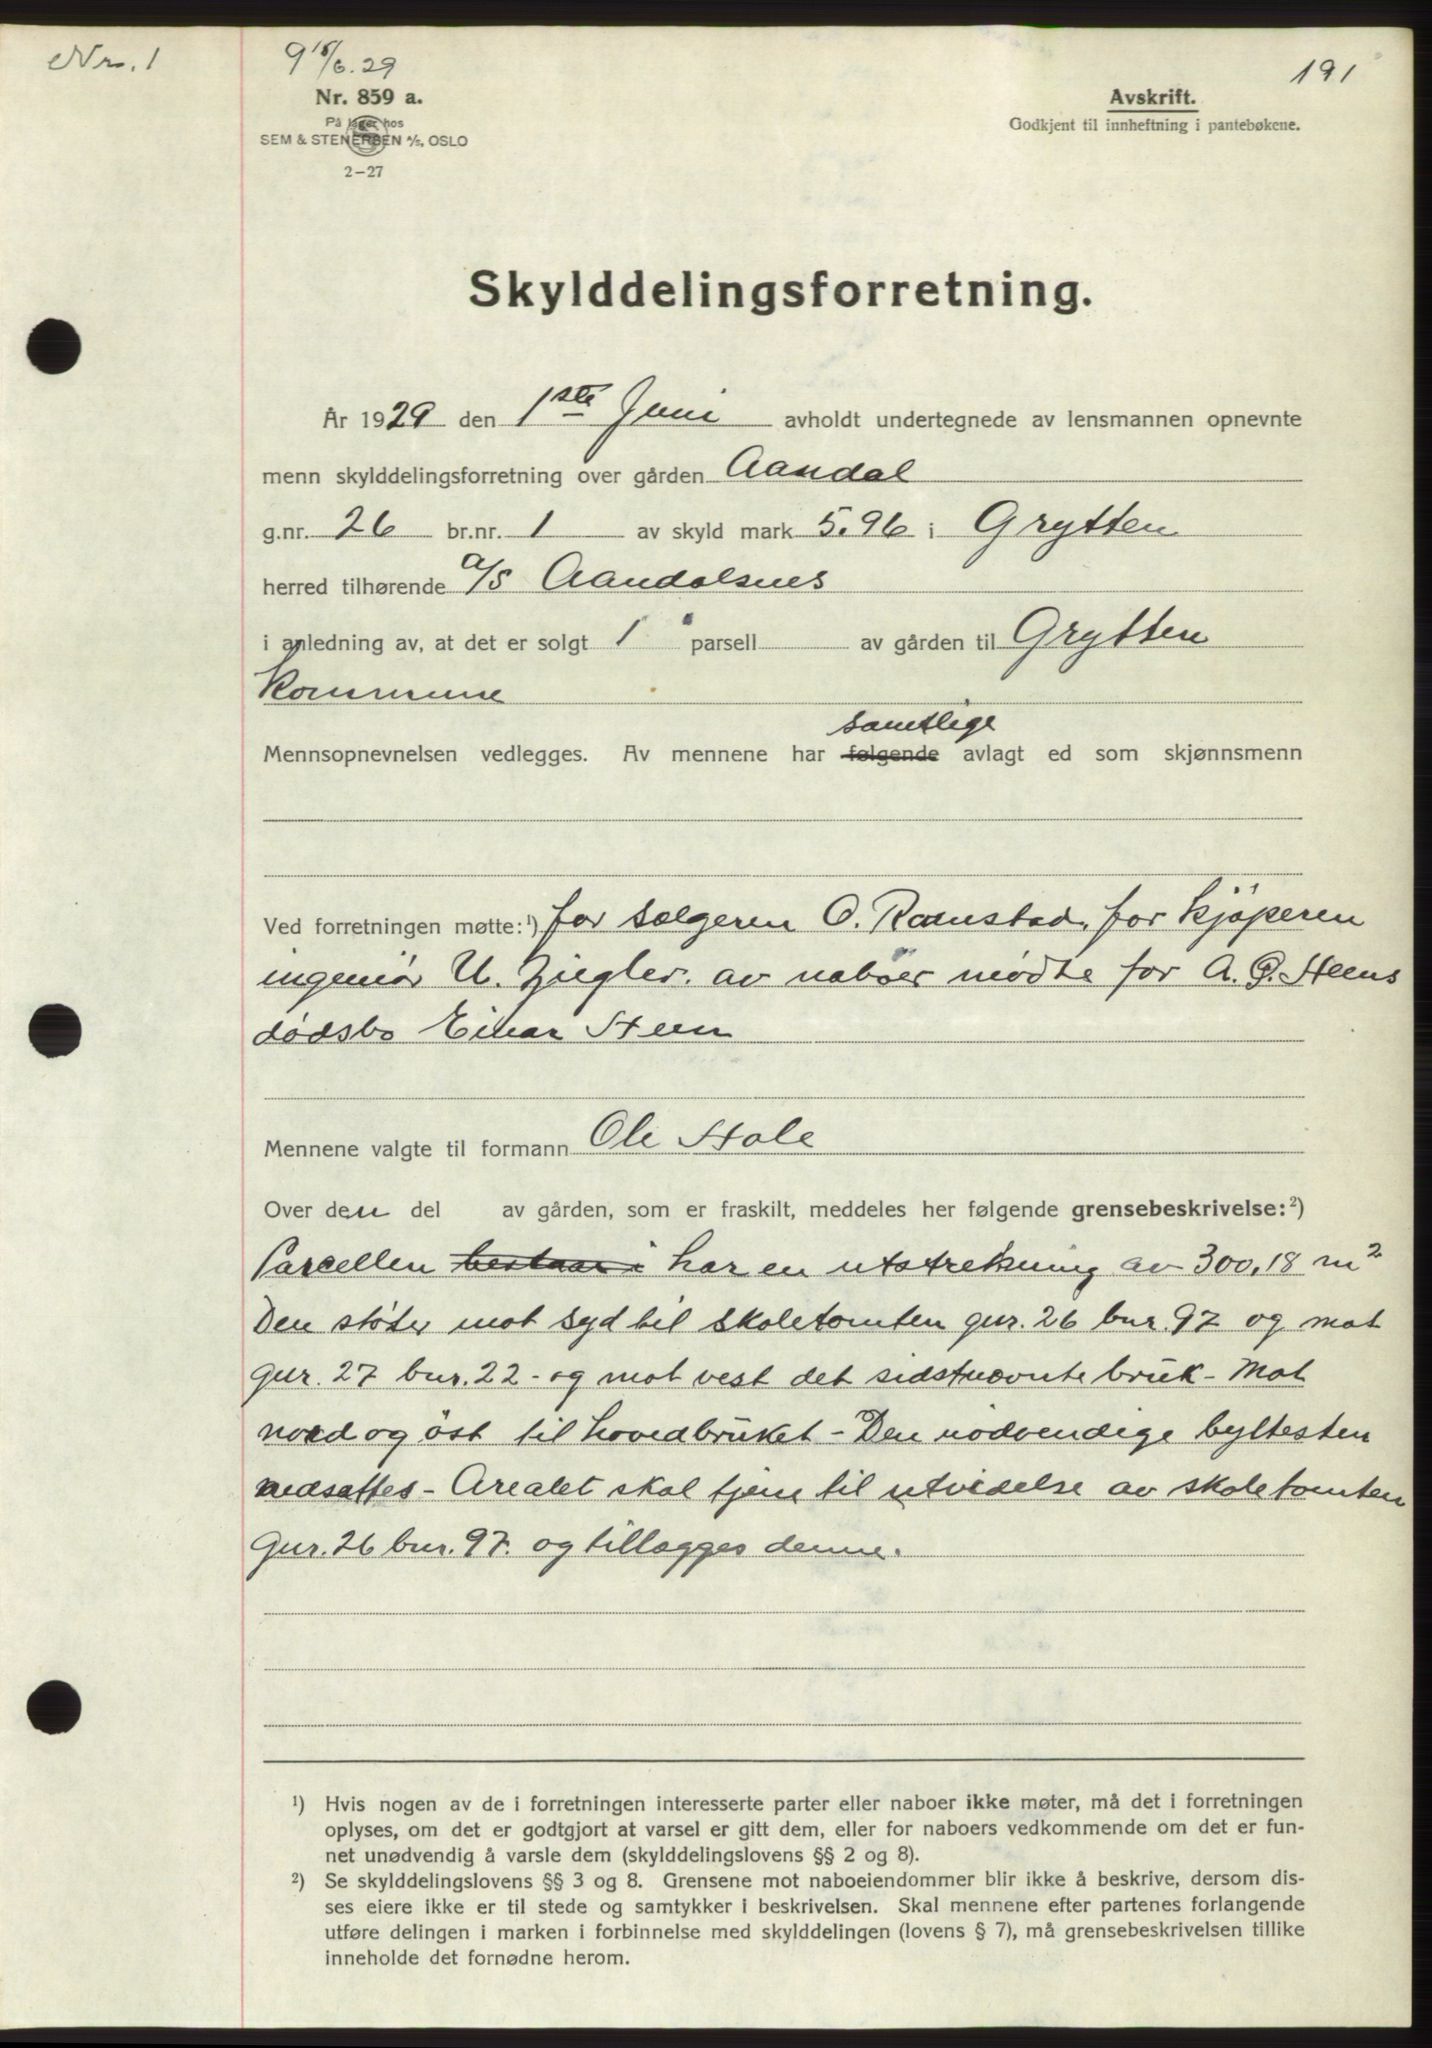 Nr. 1
9 15/6.29
191
Nr. 859 a.
På lager hos
SEM & STENERSEN A/S, OSLO
2–27
Avskrift.
Godkjent til innheftning i pantebøkene.
Skylddelingsforretning.
År 1929 den 1ste Juni avholdt undertegnede av lensmannen opnevnte
menn skylddelingsforretning over gården Aandal
g.nr. 26 br.nr. 1 av skyld mark 5.96 i Grytten
herred tilhørende a/s Aandalsnes
i anledning av, at det er solgt 1 parsell av gården til Grytten
Kommune
samtlige
Mennsopnevnelsen vedlegges. Av mennene har følgende avlagt ed som skjønnsmenn
Ved forretningen møtte:¹) for sælgeren O. Ramstad, for kjöperen
ingeniör U. Ziegler. av naboer mödte for A. G. Steens
dödsbo Einar Steen
Mennene valgte til formann Ole Stole
Over den del av gården, som er fraskilt, meddeles her følgende grensebeskrivelse:²)
Parcellen bestaar i har en utstrekning av 300,18 m²
Den stöter mot syd til skoletomten gnr. 26 bnr. 97 og mot
gnr. 27 bnr. 22 - og mot vest det sidstnævnte bruk - Mot
nord og öst til hovedbruket - Den nödvendige byttesten
nedsattes - Arealet skal tjene til utvidelse av skoletomten
Gnr. 26 bnr. 97. og tillægges denne.
¹) Hvis nogen av de i forretningen interesserte parter eller naboer ikke møter, må det i forretningen
oplyses, om det er godtgjort at varsel er gitt dem, eller for naboers vedkommende om det er fun-
net unødvendig å varsle dem (skylddelingslovens §§ 2 og 8).
²) Se skylddelingslovens §§ 3 og 8. Grensene mot naboeiendommer blir ikke å beskrive, dersom dis-
ses eiere ikke er til stede og samtykker i beskrivelsen. Skal mennene efter partenes forlangende
utføre delingen i marken i forbinnelse med skylddelingen (lovens § 7), må grensebeskrivelsen tillike
inneholde det fornødne herom.